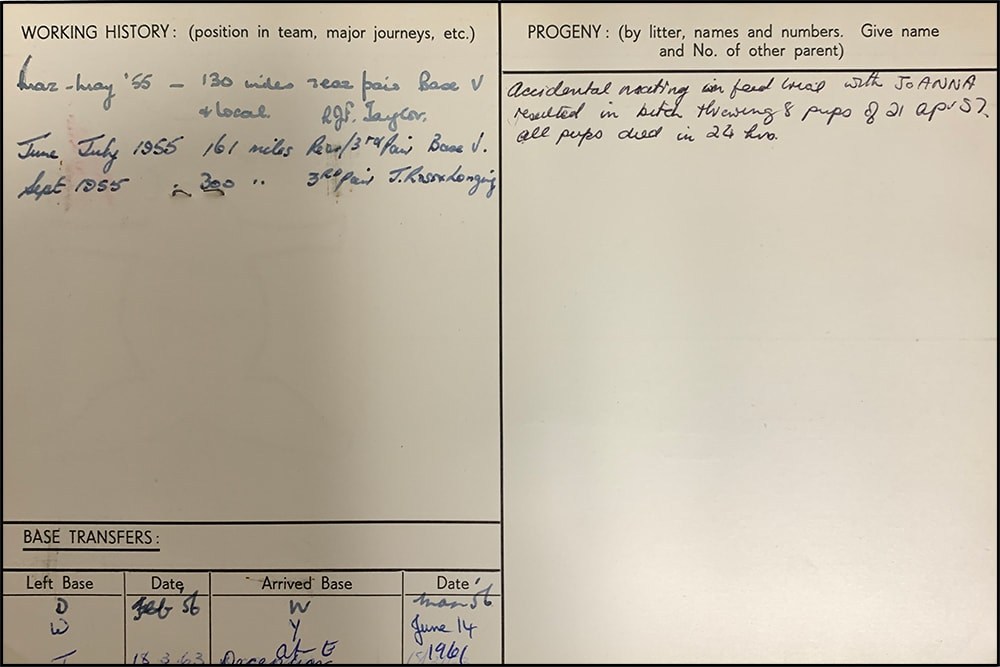 WORKING HISTORY: (position in team, major journeys, etc.)
Mar-May '55 - 130 miles rear pair Base V
& local. R.J.F. Taylor.
June, July 1955 161 miles Rear/3rd Pair Base V.
Sept 1955 300 " 3RD Pair J.
PROGENY: (by litter, names and numbers. Give name
and No. of other parent)
Accidental mating in feed trial with JOANNA
resulted in bitch throwing 8 pups of 21 Apr 57.
all pups died in 24 hrs.
BASE TRANSFERS:
Left Base Date Arrived Base Date
D Feb 56 W Mar 56
W Y June 14
18.3.63 at E 1961